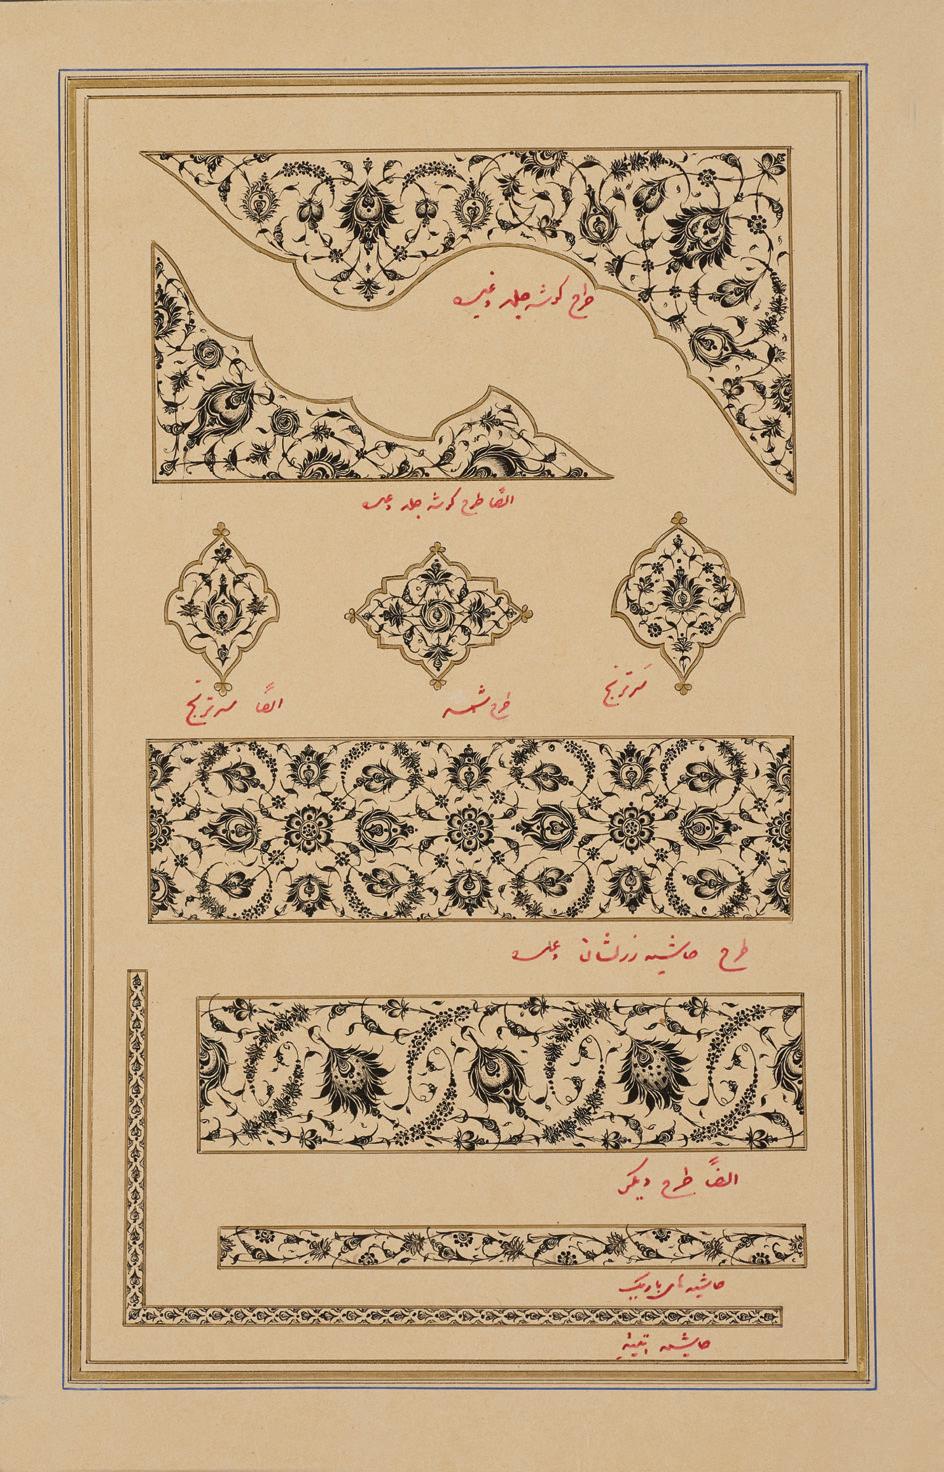 طراح گوشه جلد و غیره
ایضاً طرح گوشه جلد و غیره
سر ترنج
طرح شمسه
ایضاً سر ترنج
طرح حاشیه زرفشان و غیره
ایضاً طرح دیگر
حاشیه های باریک
حاشیه